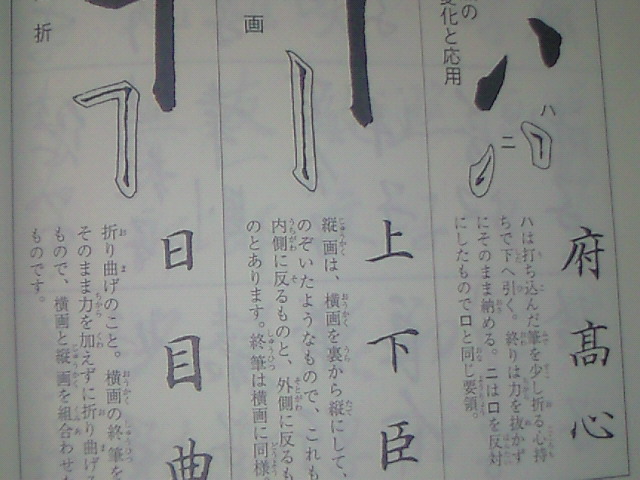 の
変化と応用
ハ
ニ
府高心
ハは打ち込んだ筆を少し折る心持
ちで下へ引く。終りは力を抜かず
にそのまま納める。ニはロを反対
にしたものでロと同じ要領。
画
上下臣
縦画は、横画を裏から縦にして、
のぞいたようなもので、これも
内側に反るものと、外側に反るも
のとあります。終筆は横画に同様
折
日目曲
折り曲げのこと。横画の終筆を
そのまま力を加えずに折り曲げ
もので、横画と縦画を組合わせ
ものです。